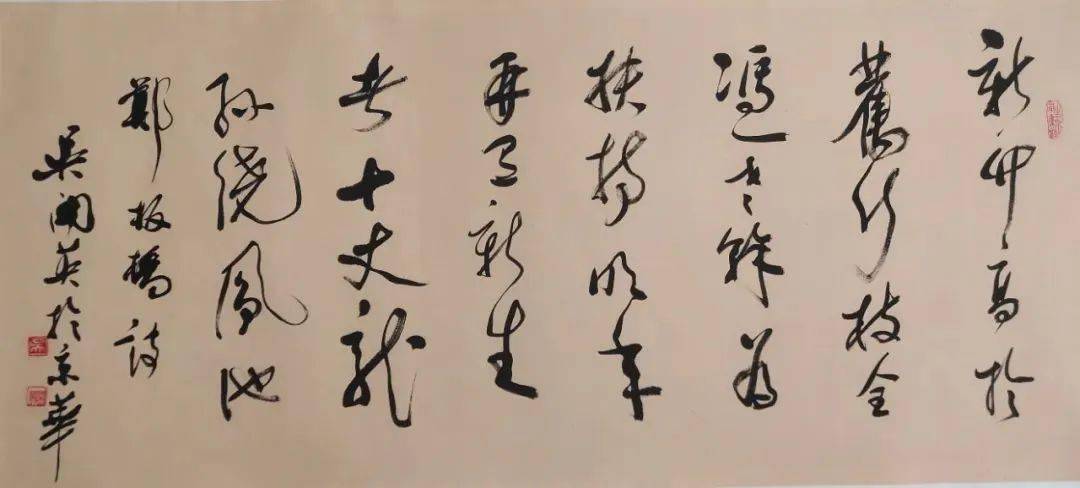 新竹高於
舊竹枝全
憑老幹為
扶持明年
再有新生
者十丈龍
孫繞鳳池
鄭板橋詩
吳開英於京華